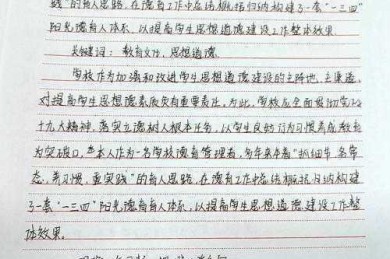 线”的育人思路,在德育工作中总结概括归纳构建了一套“一三四”
阳光德育育人体系,以提高学生思想道德建设工作整体效果。
关键词:教育文化,思想道德
学校作为加强和改进学生思想道德建设的主阵地、主渠道,
对提高学生思想道德素质负有重要责任。为此,学校应全面贯彻党的
十九大精神,落实立德树人根本任务,以学生良好行为习惯养成教育
为突破口,本人作为一名学校德育管理者,多年来本着“抓细节、名常
态、养习惯、重实践”的育人思路,在德育工作中总结概括归纳构建
了一套“一三四”阳光德育育人体系,以提高学生思想道德建设工作整
体效果。